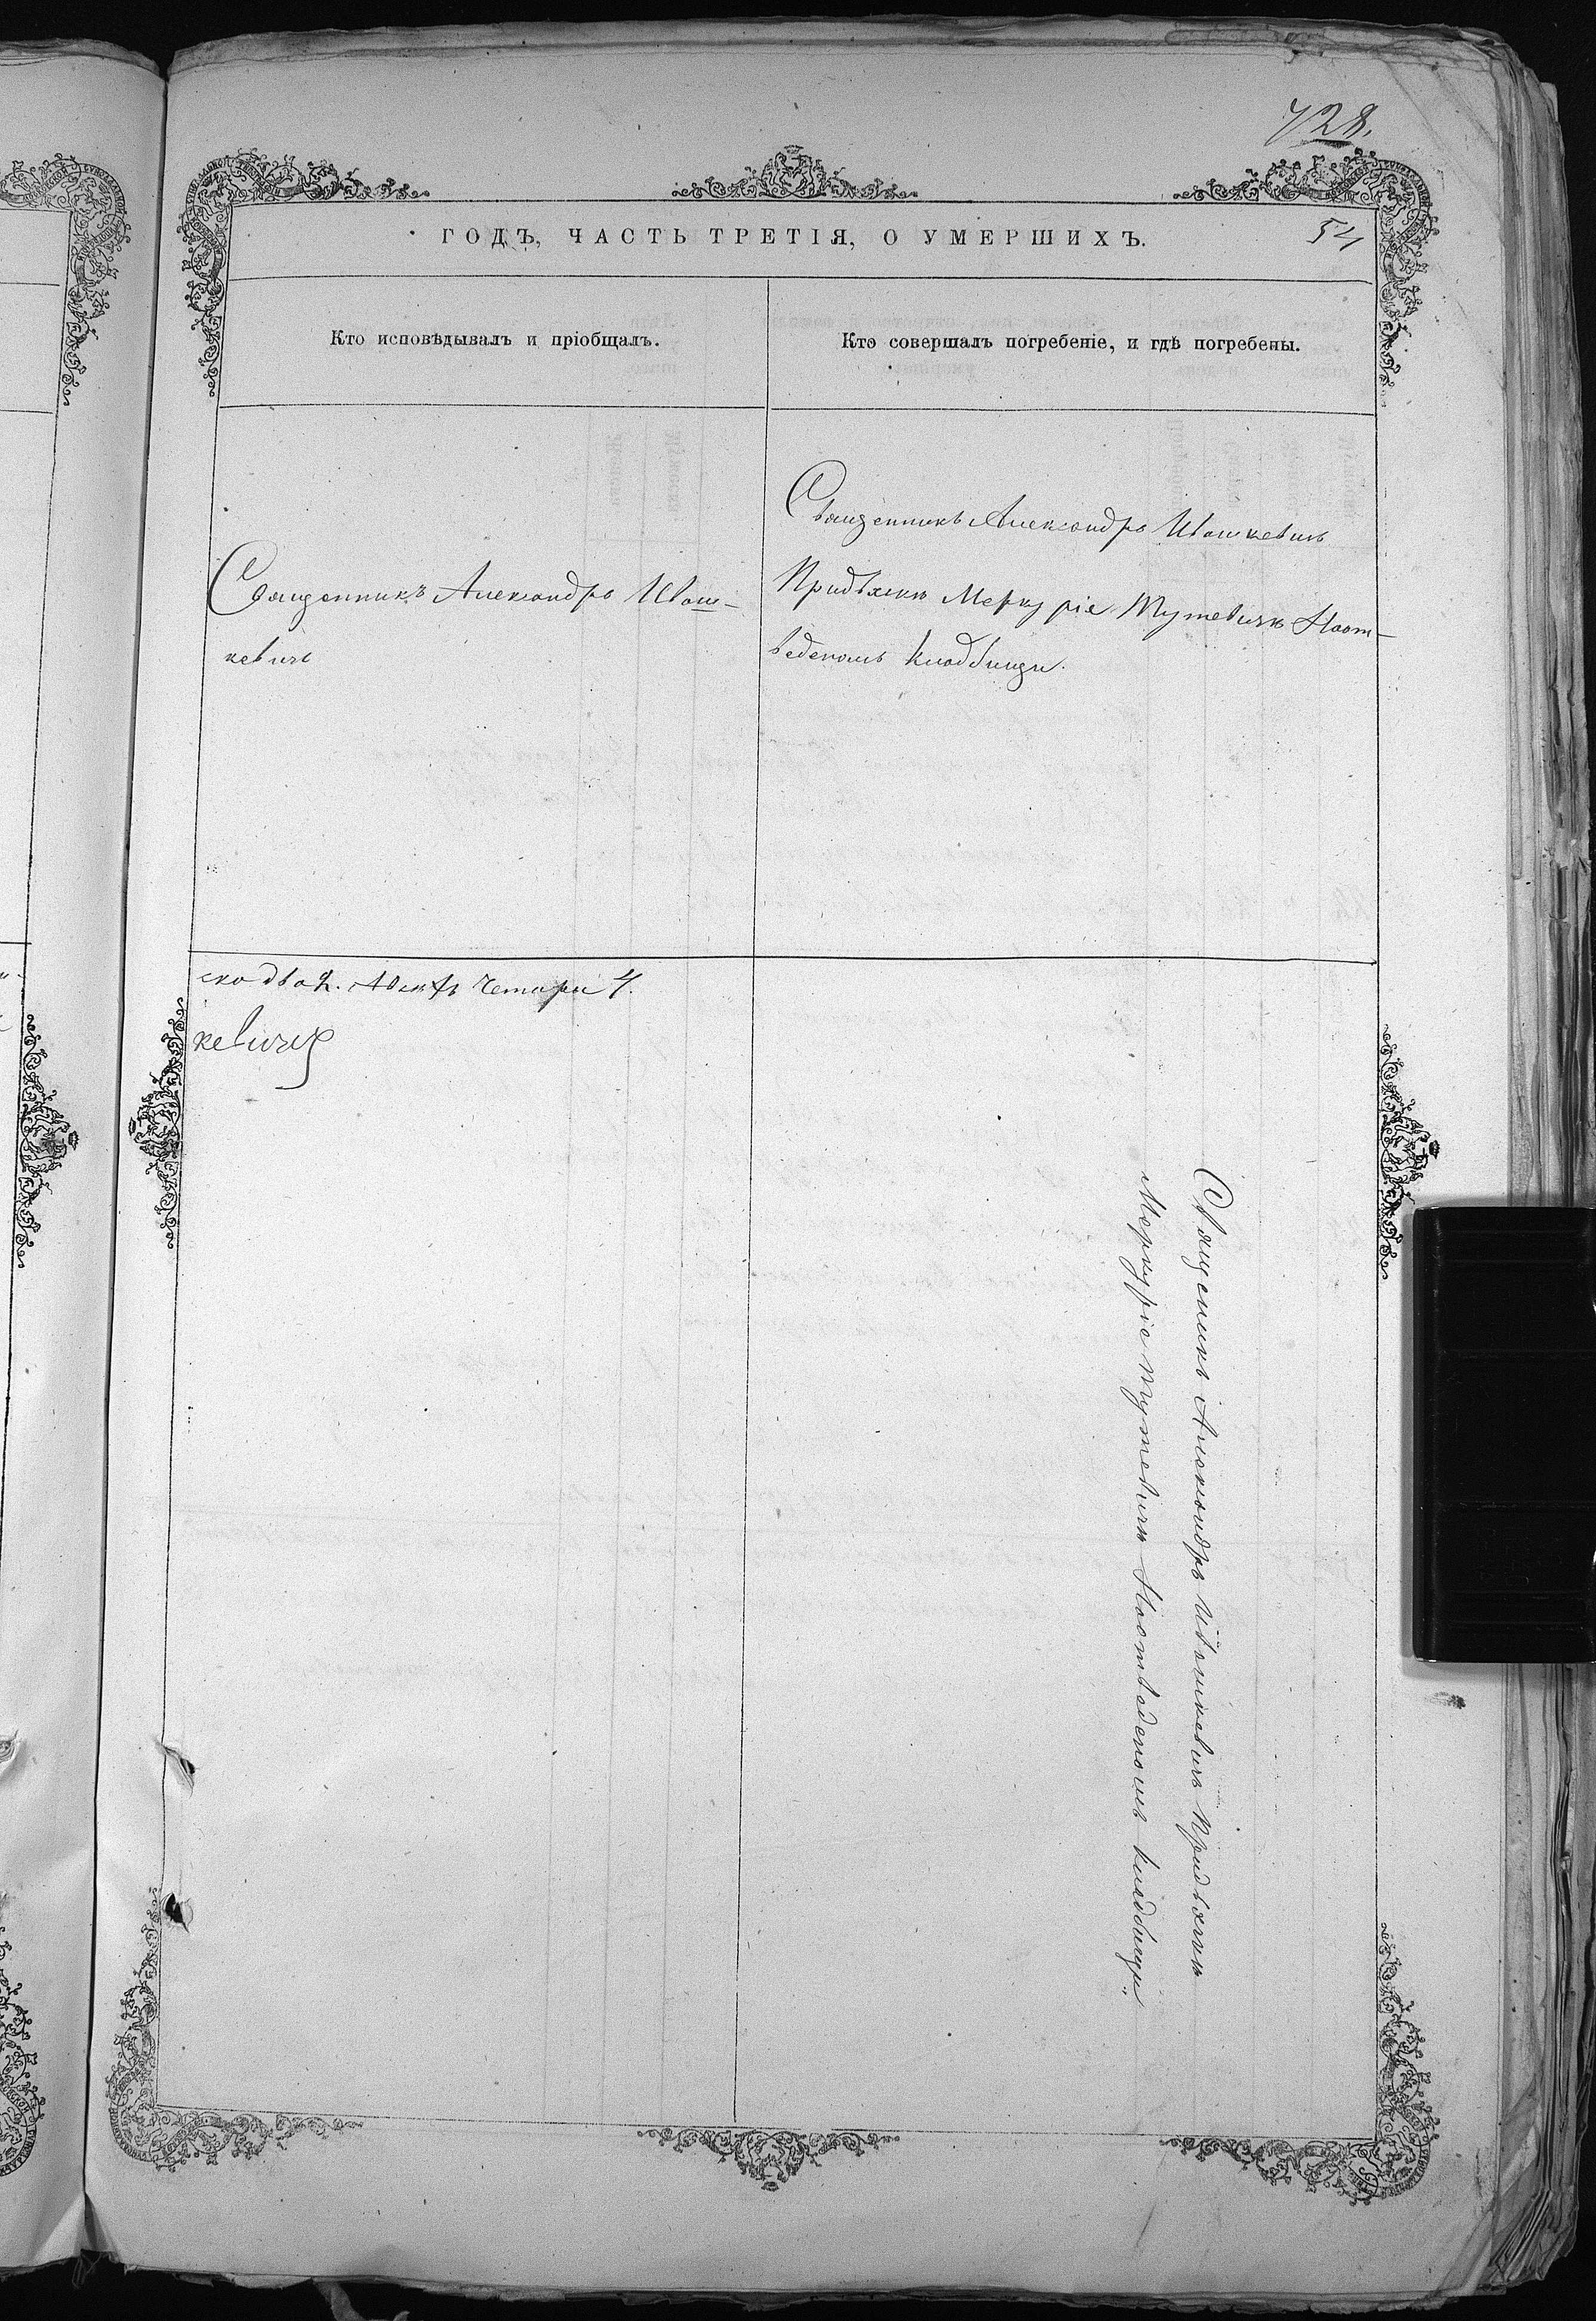 728.
ГОДЪ, ЧАСТЬ ТРЕТІЯ, О УМЕРШИХЪ.
54
Кто исповѣдывалъ и пріобщалъ.
Кто совершалъ погребеніе, и гдѣ погребены.
Священникъ Александръ Иваш-
кевичъ
Священникъ Александръ Ивашкевичъ
Придьячкѣ Меркуріе Тутевичѣ Наот-
веденомъ кладбищи.
ско два 2. Авсѣхъ четыри 4.
кевичъ
Священникъ Александръ Ивашкевичъ Придьячкѣ
Меркуріе Тутевичѣ Наотведеномъ кладбищи